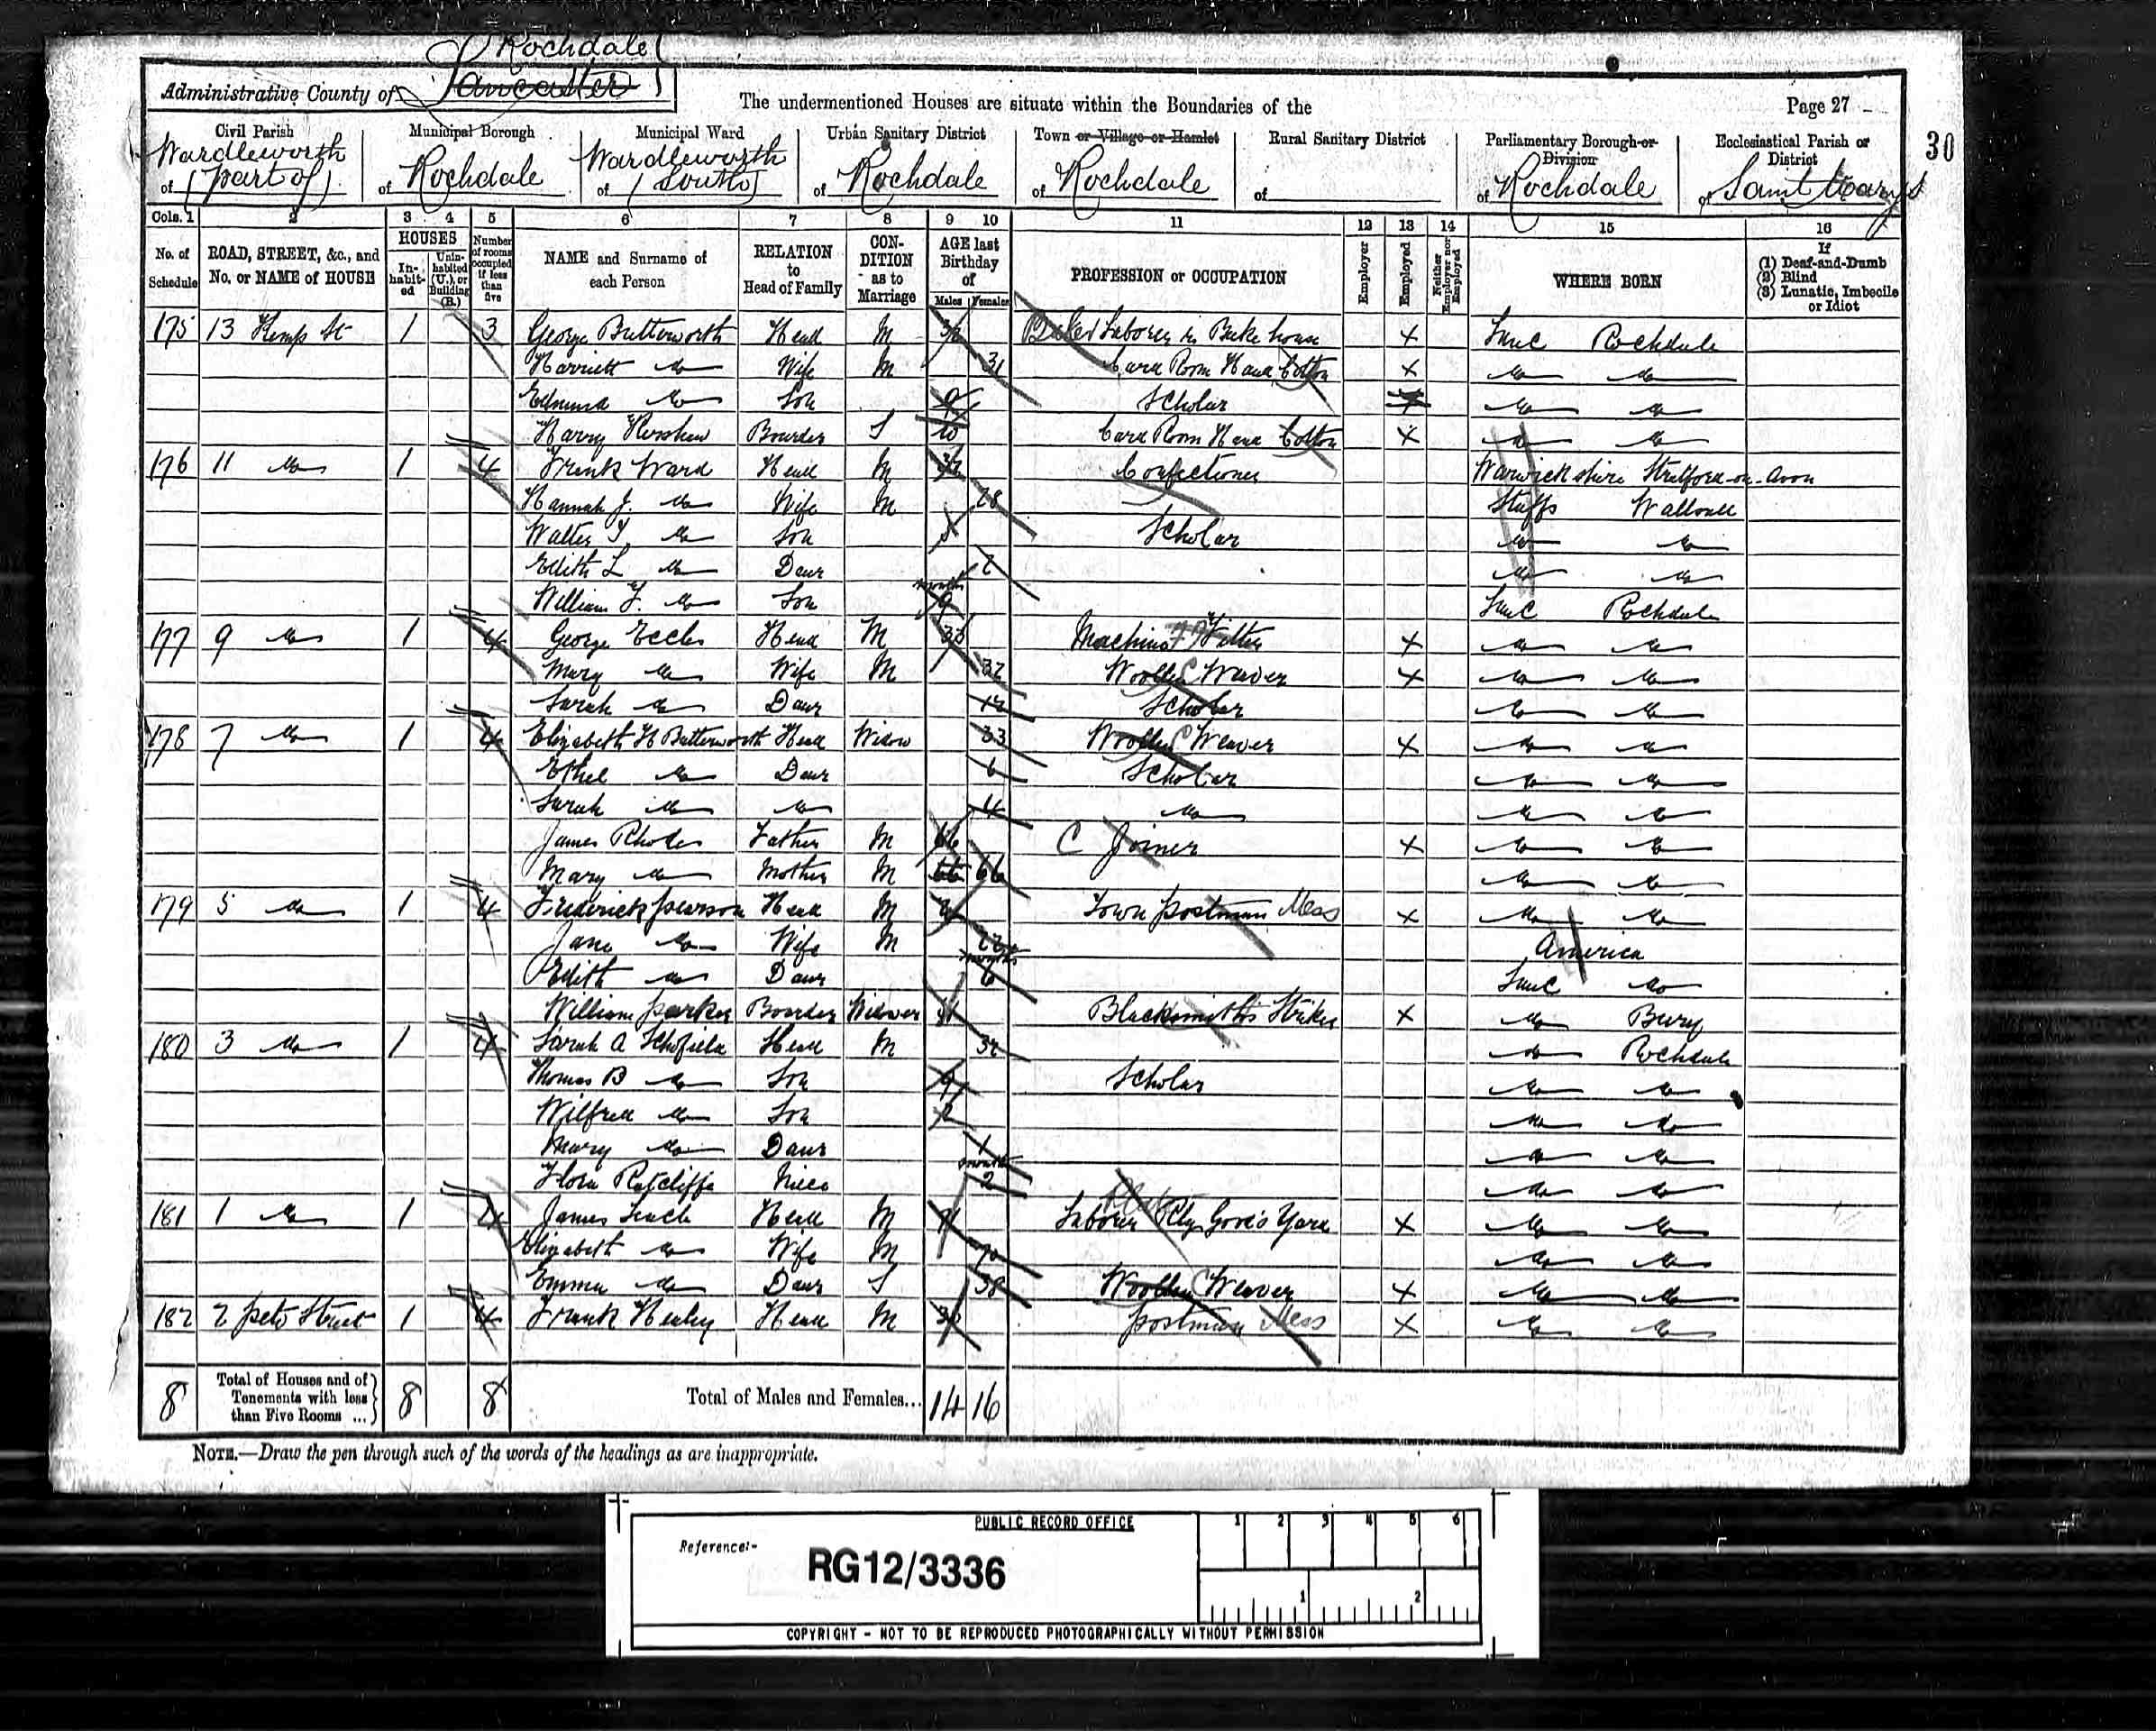 Rochdale
Administrative County of Lancaster
The undermentioned Houses are situate within the Boundaries of the
Page 27
30
Civil Parish Municipal Borough Municipal Ward Urban Sanitary District Town or Village or Hamlet Rural Sanitary District Parliamentary Borough or Division Ecclesiastical Parish or District
Wardleworth of (part of) of Rochdale Wardleworth of (South) of Rochdale of Rochdale of of Rochdale of Saint Mary's
Cols. 1 2 3 4 5 6 7 8 9 10 11 12 13 14 15 16
No. of Schedule ROAD, STREET, &c., and No. or NAME of HOUSE HOUSES Inhabited Uninhabited (U.), or Building (B.) Number of rooms occupied if less than five NAME and Surname of each Person RELATION to Head of Family CONDITION as to Marriage AGE last Birthday of Males Females PROFESSION or OCCUPATION Employer Employed Neither Employer nor Employed WHERE BORN If (1) Deaf-and-Dumb (2) Blind (3) Lunatic, Imbecile or Idiot
175 13 Kemp St 1 3 George Butterworth Head M Laborer in Bake house X Lanc Rochdale
Harriett Do Wife M 31 Card Room Hand Cotton X Do Do
Edmund Do Son 9 Scholar Do Do
Harry Kershaw Boarder S Card Room Hand Cotton X Do Do
176 11 Do 1 4 Frank Ward Head M Confectioner Warwickshire Stratford-on-Avon
Hannah J. Do Wife M 28 Staffs Wallsall
Walter Do Son 5 Scholar Do Do
Edith L Do Daur 2 Do Do
William Do Son months 9 Lanc Rochdale
177 9 Do 1 4 George Eccles Head M 33 Machine Fitter X Do Do
Mary Do Wife M 32 Woollen Weaver X Do Do
Sarah Do Daur 12 Scholar Do Do
178 7 Do 1 4 Elizabeth H Butterworth Head Widow 33 Woollen C Weaver X Do Do
Ethel Do Daur 6 Scholar Do Do
Sarah Do Do 4 Do Do Do
James Rhodes Father M 66 C Joiner X Do Do
Mary Do Mother M 66 66 Do Do
179 5 Do 1 4 Frederick Pearson Head M Town Postman Mess X Do Do
Jane Do Wife M 22 America
Edith Do Daur months 6 Lanc Do
William Parker Boarder Widower Blacksmith's Striker X Do Bury
180 3 Do 1 4 Sarah A Schofield Head M 32 Do Rochdale
Thomas B Do Son 9 Scholar Do Do
Wilfred Do Son 2 Do Do
Mary Do Daur 1 Do Do
Flora Ratcliffe Niece months 2 Do Do
181 1 Do 1 4 James Leach Head M 71 Laborer Rly Goods Yard X Do Do
Elizabeth Do Wife M 70 Do Do
Emma Do Daur S 38 Woollen C Weaver X Do Do
182 2 Peto Street 1 4 Frank Healey Head M Postman Mess X Do Do
8 Total of Houses and of Tenements with less than Five Rooms ... 8 8 Total of Males and Females... 14 16
NOTE.—Draw the pen through such of the words of the headings as are inappropriate.
PUBLIC RECORD OFFICE 1 2 3 4 5 6
Reference:-
RG12/3336
1 2
COPYRIGHT - NOT TO BE REPRODUCED PHOTOGRAPHICALLY WITHOUT PERMISSION